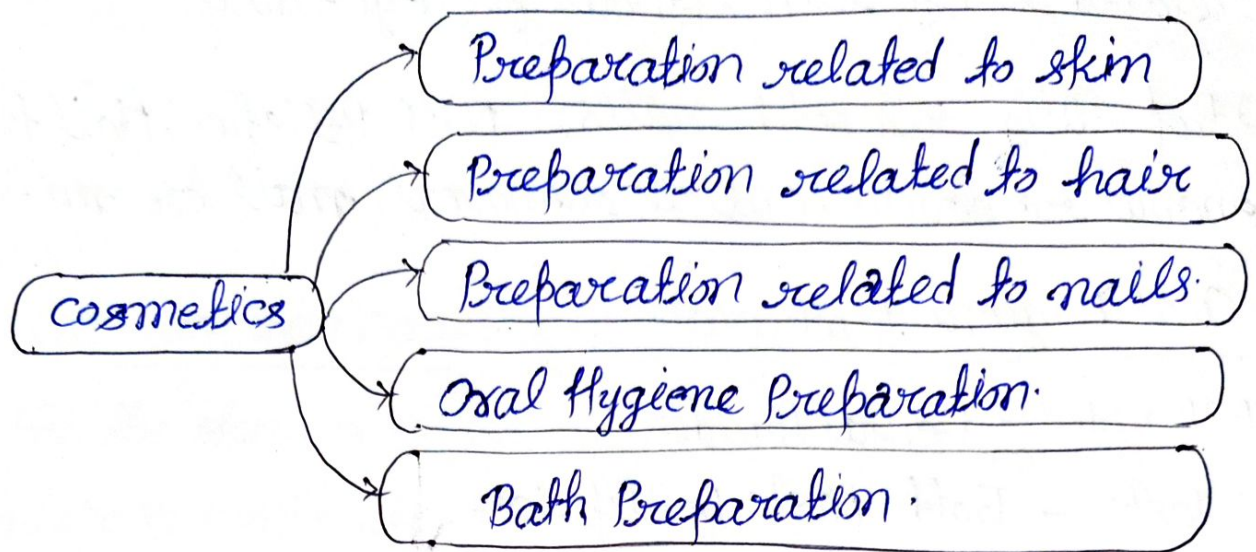 Preparation related to skin
Preparation related to hair
Preparation related to nails.
cosmetics
Oral Hygiene Preparation.
Bath Preparation.